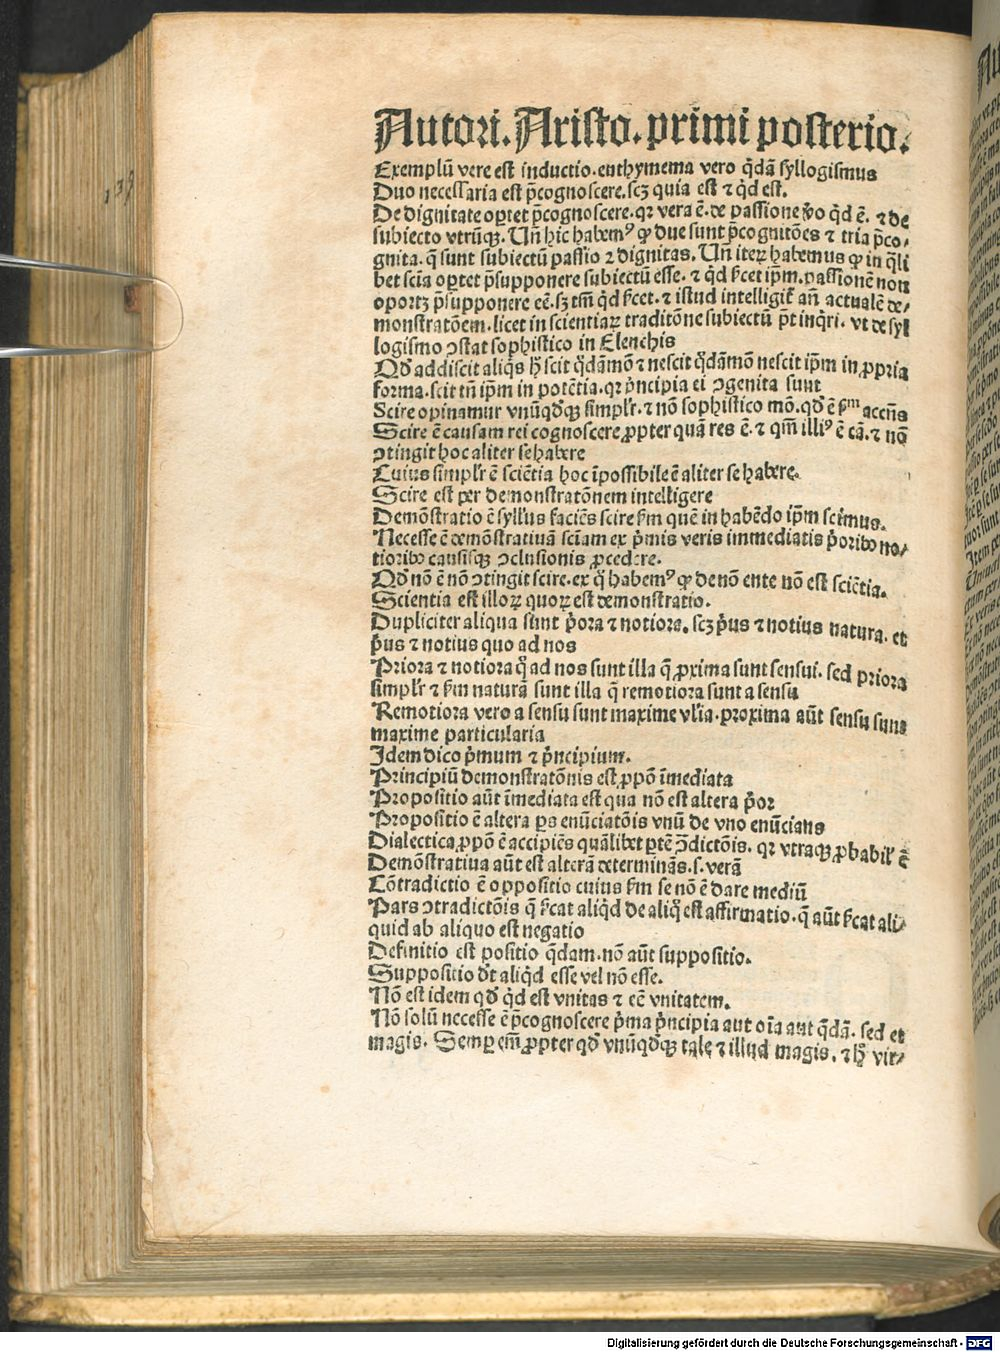 Autori. Aristo. primi posterio.
Exemplū vere est inductio. enthymema vero q̄dā syllogismus
Duo necessaria est p̄cognoscere. scꝫ quia est ⁊ qͥd est.
De dignitate oꝑtet p̄cognoscere. qꝛ vera ē. de passione ꝟo qͥd ē. ⁊ de
subiecto vtrūqꝫ. Un̄ hic habemꝰ ꝙ due sunt p̄cognitōes ⁊ tria p̄co-
gnita. q̄ sunt subiectū passio ⁊ dignitas. Un̄ iteꝝ habemus ꝙ in q̄li
bet scīa oꝑtet p̄supponere subiectū esse. ⁊ qͥd s̄cet ip̄m. passionē non
oportꝫ p̄supponere eē. sꝫ tm̄ qͥd s̄cet. ⁊ istud intelligit̄ an̄ actualē de-
monstratōem. licet in scientiaꝝ traditōne subiectū pōt inqͥri. vt de syl
logismo ꝯstat sophistico in Elenchis
Qd̓ addiscit aliqͥs hͦ scit qͦdāmō ⁊ nescit qͦdāmō nescit ip̄m in ꝓpria
forma. scit tn̄ ip̄m in potētia. qꝛ pͥncipia ei ꝯgenita sunt
Scire opinamur vnūqd̓qꝫ simplr̓. ⁊ nō sophistico mō. qd̓ ē ẜm accn̄s
Scire ē causam rei cognoscere ꝓpter quā res ē. ⁊ qm̄ illiꝰ ē cā. ⁊ nō
ꝯtingit hoc aliter se habere
Cuius simplr̓ ē sciētia hoc īpossibile ē aliter se habere.
Scire est per demonstratōnem intelligere
Demōstratio ē syllꝰus faciēs scire ẜm quē in habēdo ip̄m scimus.
Necesse ē demōstratiuā sciam ex pͥmis veris immediatis pͥoribꝰ no-
tioribꝰ causisqꝫ ꝯclusionis ꝓcedere.
Qd̓ nō ē nō ꝯtingit scire. ex qͦ habemꝰ ꝙ de nō ente nō est sciētia.
Scientia est illoꝝ quoꝝ est demonstratio.
Dupliciter aliqua sunt pͥora ⁊ notiora. scꝫ pͥus ⁊ notius natura. et
pͥus ⁊ notius quo ad nos
Priora ⁊ notiora qͦ ad nos sunt illa q̄ ꝓxima sunt sensui. sed priora
simplr̓ ⁊ ẜm naturā sunt illa q̄ remotiora sunt a sensu
Remotiora vero a sensu sunt maxime vl̓ia. proxima aūt sensu sunt
maxime particularia
Idem dico pͥmum ⁊ pͥncipium.
Principiū demonstratōnis est ꝓpō īmediata
Propositio aūt īmediata est qua nō est altera pͥor
Propositio ē altera ꝑs enūciatōis vnū de vno enūcians
Dialectica ꝓpō ē accipiēs quālibet ꝑtē ꝯ̄dictōis. qꝛ vtraqꝫ ꝓbabil̓ ē
Demōstratiua aūt est alterā determinās. s. verā
Cōtradictio ē oppositio cuius ẜm se nō ē dare mediū
Pars ꝯtradictōis q̄ s̄cat aliqͥd de aliqͦ est affirmatio. q̄ aūt s̄cat ali-
quid ab aliquo est negatio
Definitio est positio q̄dam. nō aūt suppositio.
Suppositio dt̄ aliqͥd esse vel nō esse.
Nō est idem qd̓ qͥd est vnitas ⁊ eē vnitatem.
Nō solū necesse ē p̄cognoscere pͥma pͥncipia aut oīa aut q̄dā. sed et
magis. Semꝑ em̄ ꝓpter qd̓ vnūqd̓qꝫ tale ⁊ illud magis. ⁊ hͦ vir-
Digitalisierung gefördert durch die Deutsche Forschungsgemeinschaft - DFG